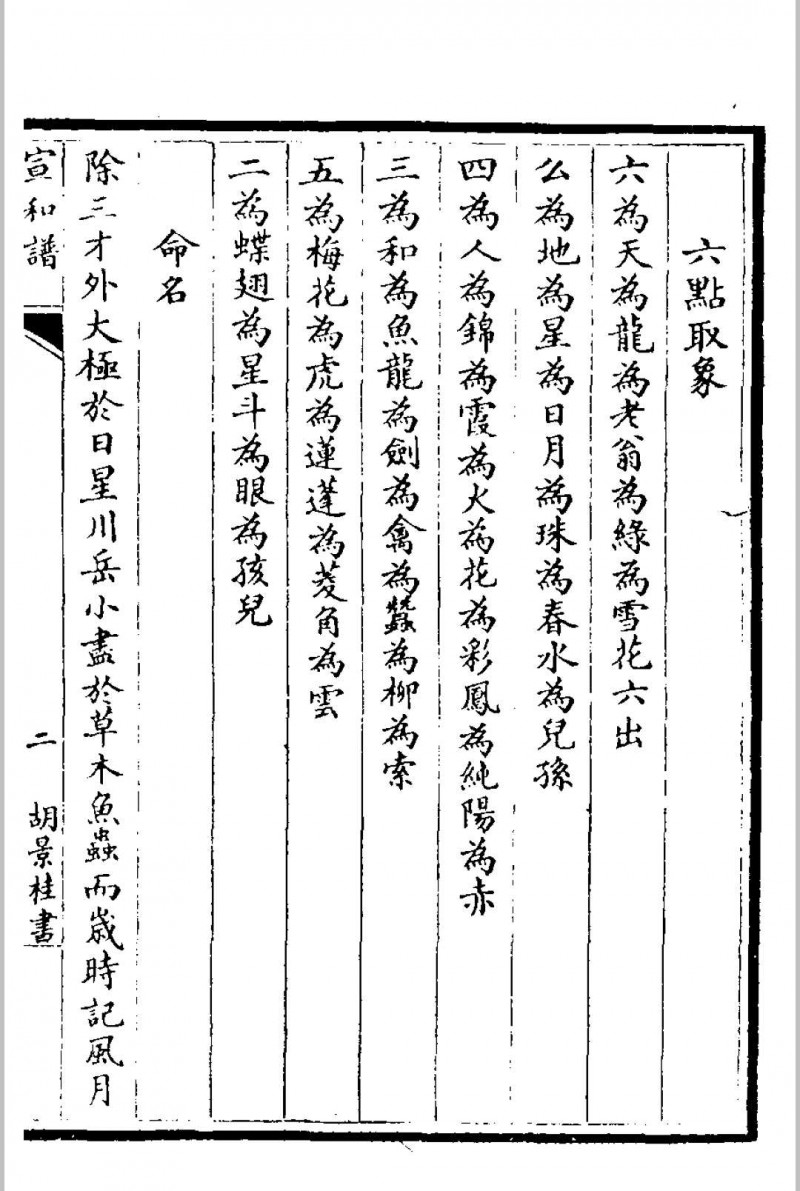 六點取象
六為天為龍為老翁為綠為雪花六出
么為地為星為日月為珠為春水為兒孫
四為人為錦為霞為火為花為彩鳳為純陽為赤
三為和為魚龍為劍為禽為蠶為柳為索
五為梅花為虎為蓮蓬為菱角為雲
二為蝶翅為星斗為眼為孩兒
命名
除三才外大極於日星川岳小盡於草木魚蟲而歲時記風月
宣和譜 二 胡景桂書